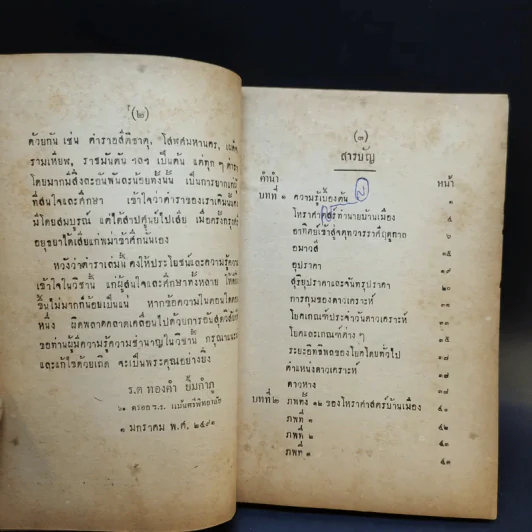 (๒)
ด้วยกัน เช่น ตำรา
รามเหียพ, ราชมัตตัน ฯลฯ เป็นต้น แต่ทุก ๆ
โดยมากมีสิ่งละอันพันละน้อยทั้งนั้น เป็นการยากแก่ผู้
ที่สนใจและศึกษา เข้าใจว่าตำราของเราเดิมนั้น
มีโดยสมบูรณ์ แต่ได้สาปสูญไปเสีย เมื่อครั้งกรุงศรี
อยุธยาได้เสียแก่พม่าข้าศึกนั้นเอง
หวังว่าตำราเล่มนี้ คงให้ประโยชน์และความรู้ความ
เข้าใจในวิชานี้ แก่ผู้สนใจและศึกษาทั้งหลาย ให้ดี
ขึ้นไม่มากก็น้อยเป็นแน่ หากข้อความในตอนใดตอน
หนึ่ง ผิดพลาดคลาดเคลื่อนไปด้วยการอันสุดวิสัย
ขอท่านผู้มีความรู้ความชำนาญในวิชานี้ กรุณา
และแก้ไขด้วยเถิด จะเป็นพระคุณอย่างยิ่ง
ร.ต ทองคำ ยิ้มกำภู
๖๑ ตรอก ร.ร.
๑ มกราคม พ.ศ. ๒๔๙๑
(๓)
สารบัญ
คำนำ หน้า
บทที่ ๑ ความรู้เบื้องต้น ๑
โหราศาสตร์ทำนายบ้านเมือง ๕
อาทิตย์เข้าสู่จตุทวารราศีฤดูกาล ๖
อมาวสี ๑๕
อุปราคา ๑๙
สุริยุปราคาและจันทรุปราคา ๒๐
การกุมของดาวเคราะห์ ๓๑
โยคเกณฑ์ประจำวันดาวเคราะห์ ๓๕
โยคและเกณฑ์ต่าง ๆ
ระยะอิทธิพลของโยคโดยทั่วไป ๓๗
ตำแหน่งดาวเคราะห์ ๓๘
ดาวหาง
บทที่ ๒ ภพทั้ง ๑๒ ของโหราศาสตร์บ้านเมือง ๕๐
ภพที่ ๑ ๕๒
ภพที่ ๒ ๕๓
ภพที่ ๓ ๕๓